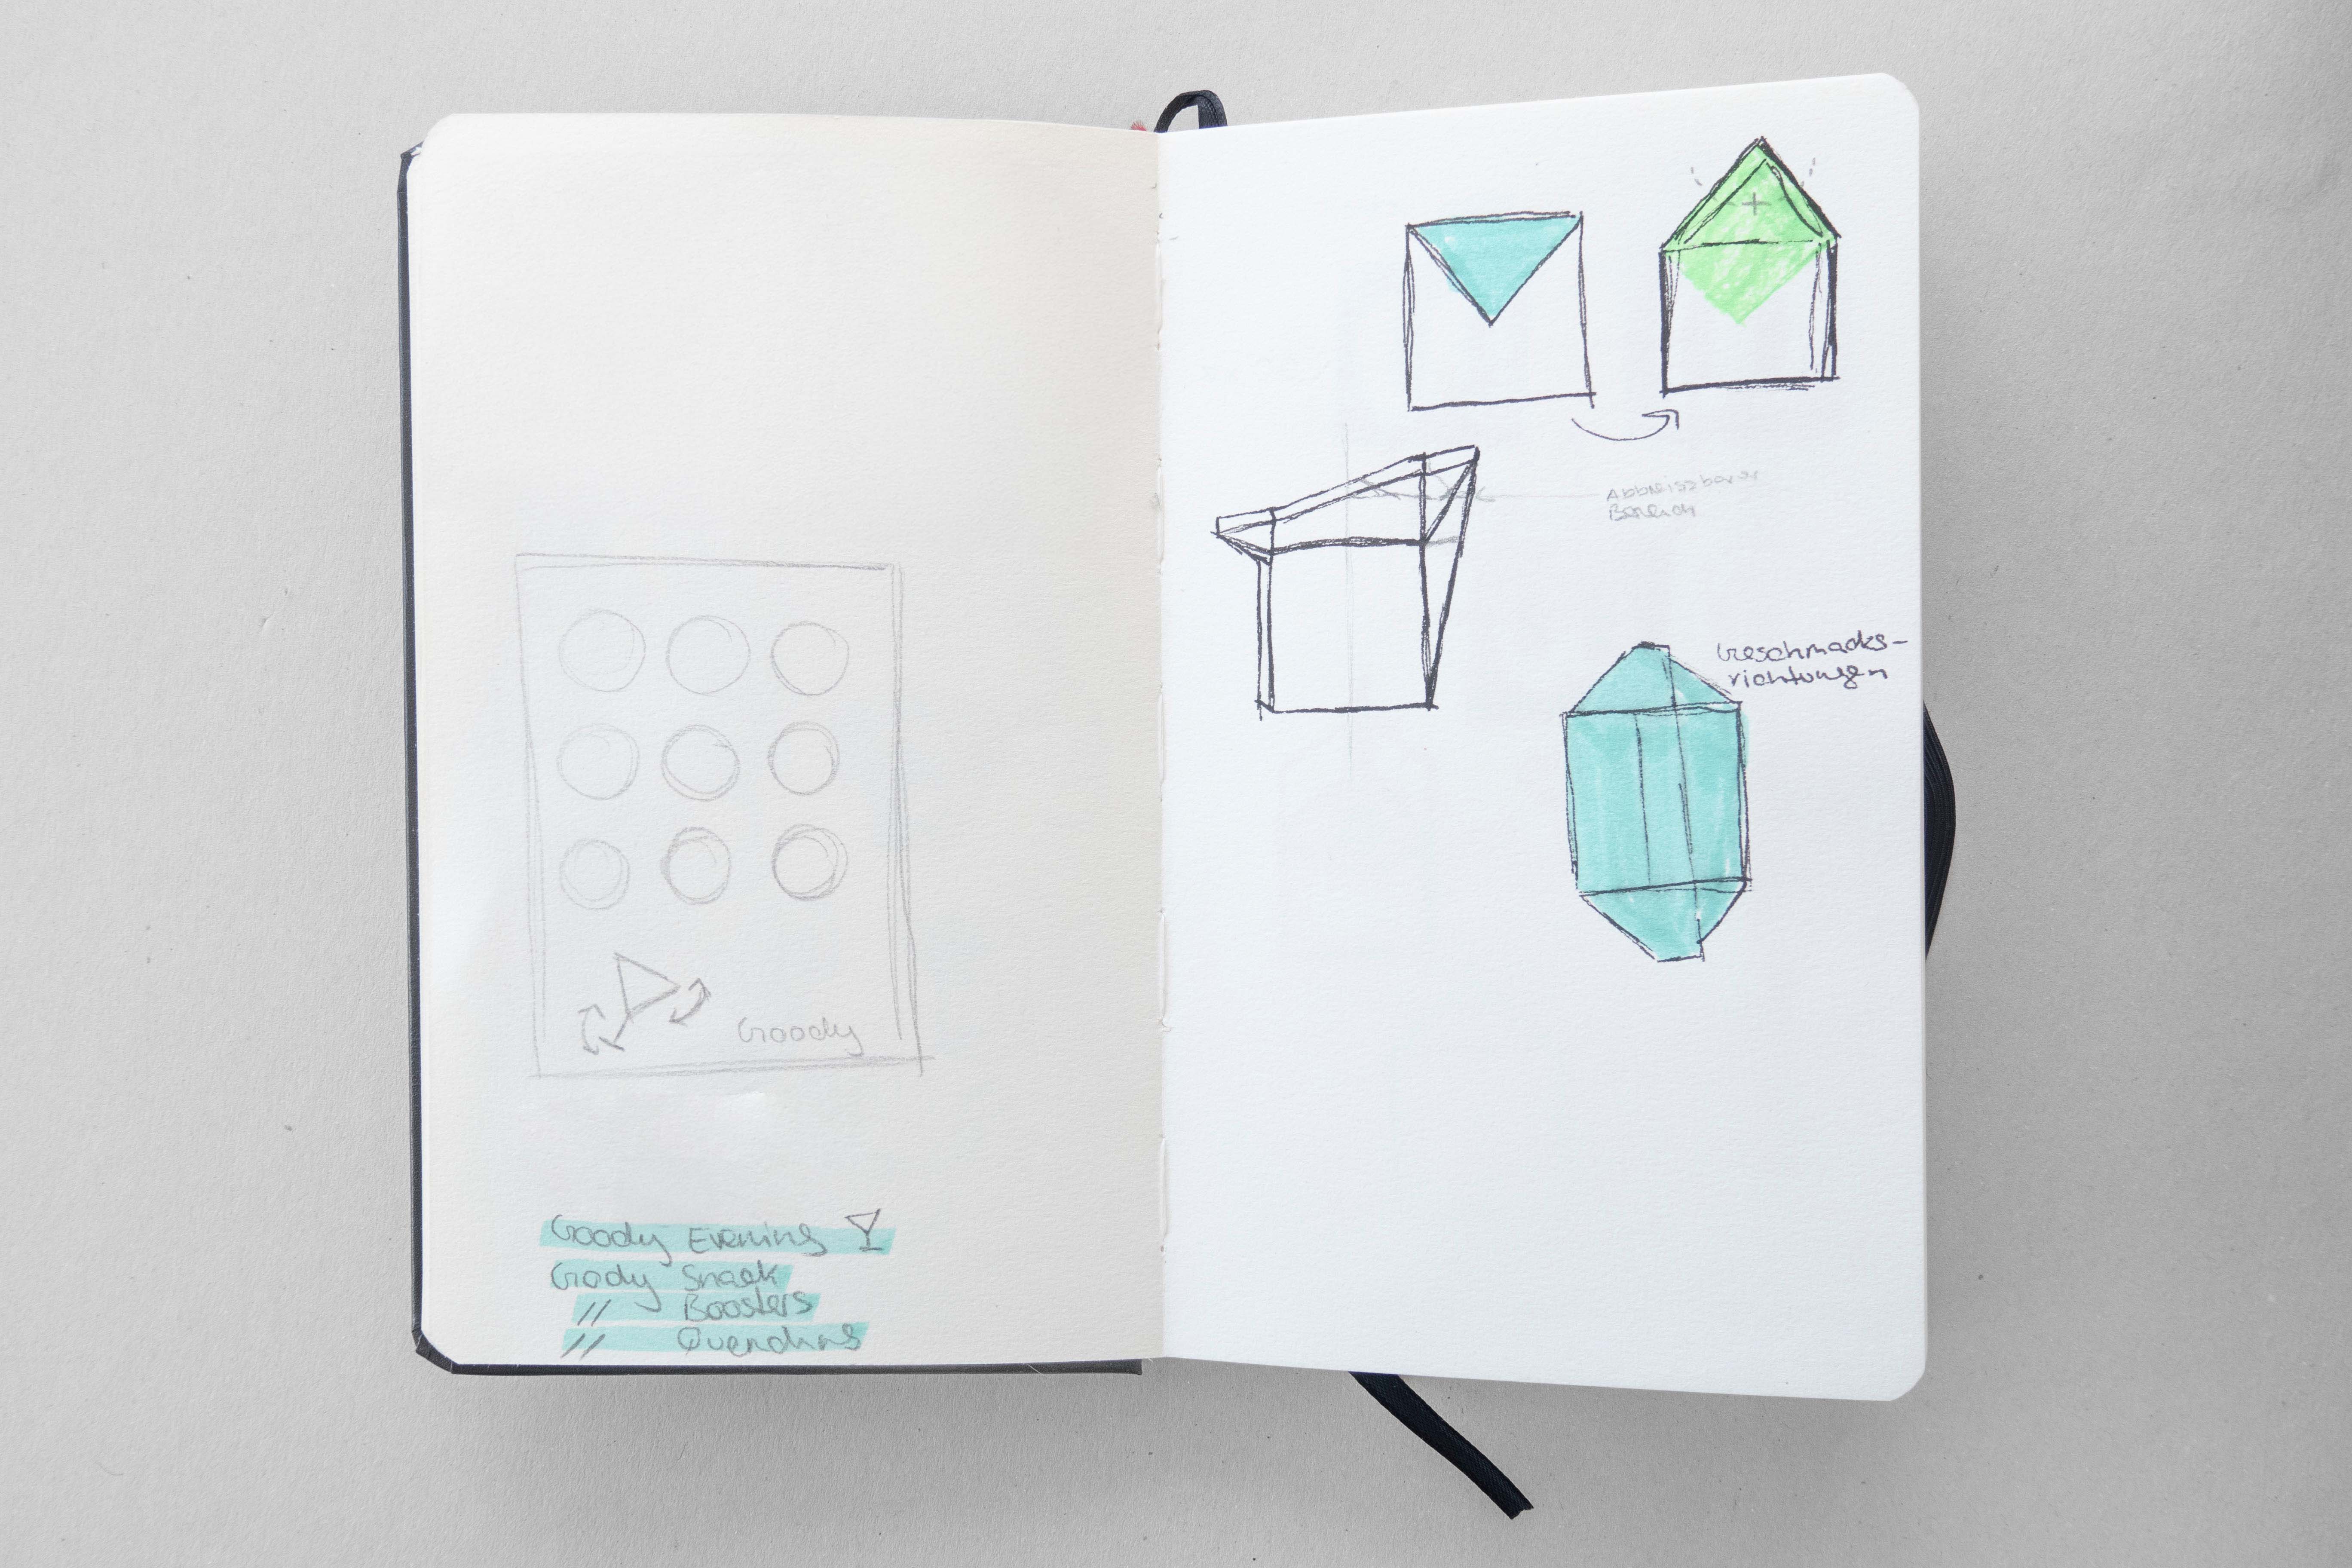 Goody
Goody Evening
Gody Snack
// Boosters
//
Abbreissbarer
Bereich
Geschmacks-
richtungen